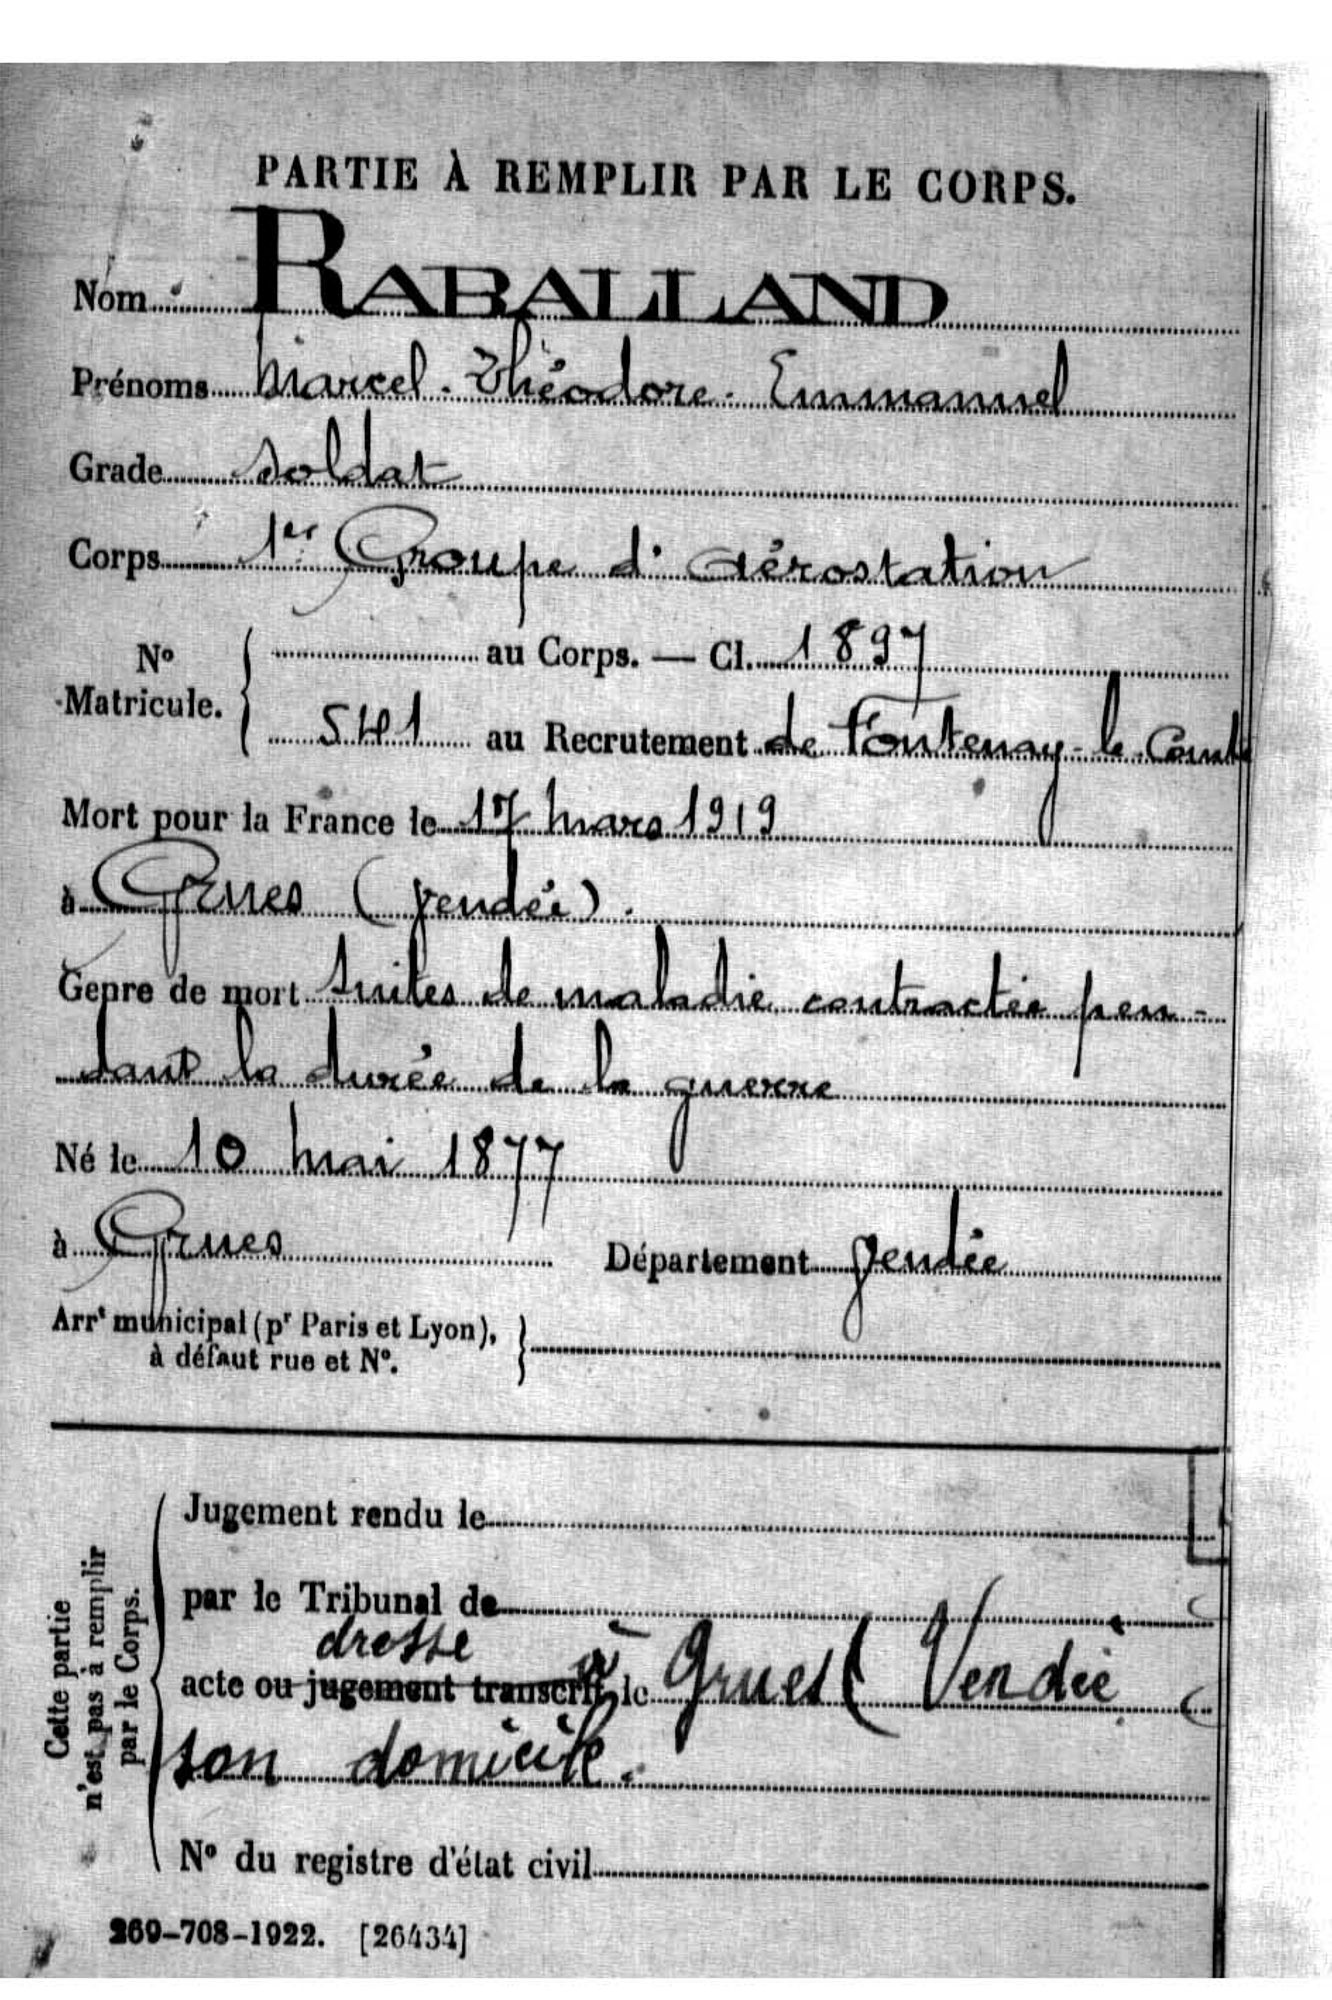 PARTIE À REMPLIR PAR LE CORPS.
Nom RABALLAND
Prénoms Marcel - Théodore - Emmanuel
Grade soldat
Corps 1er Groupe d'aérostation
No Matricule. { au Corps. — Cl. 1897
541 au Recrutement de Fontenay-le-Comte
Mort pour la France le 17 mars 1919
à Grues (Vendée).
Genre de mort suites de maladie contractée pen-
dant la durée de la guerre
Né le 10 mai 1877
à Grues Département Vendée
Arrt municipal (pr Paris et Lyon),
à défaut rue et No. }
Cette partie
n'est pas à remplir
par le Corps.
Jugement rendu le
par le Tribunal de
dresse
acte ou jugement transcrit à le Grues ( Vendée
son domicile.
No du registre d'état civil
269-708-1922. [26434]